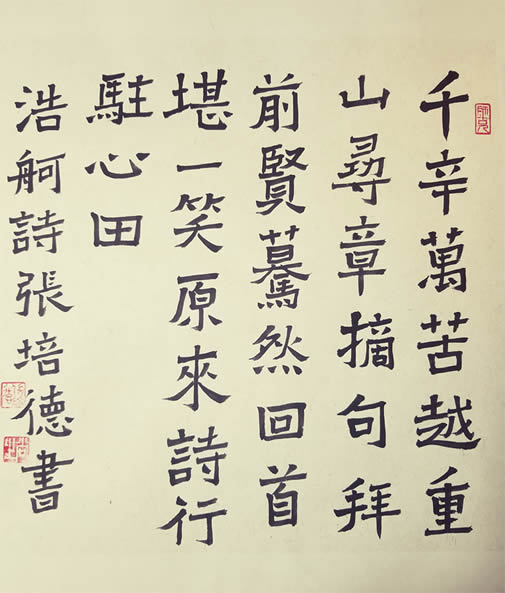 千辛萬苦越重
山尋章摘句拜
前賢驀然回首
堪一笑原來詩行
駐心田
浩舸詩張培德書